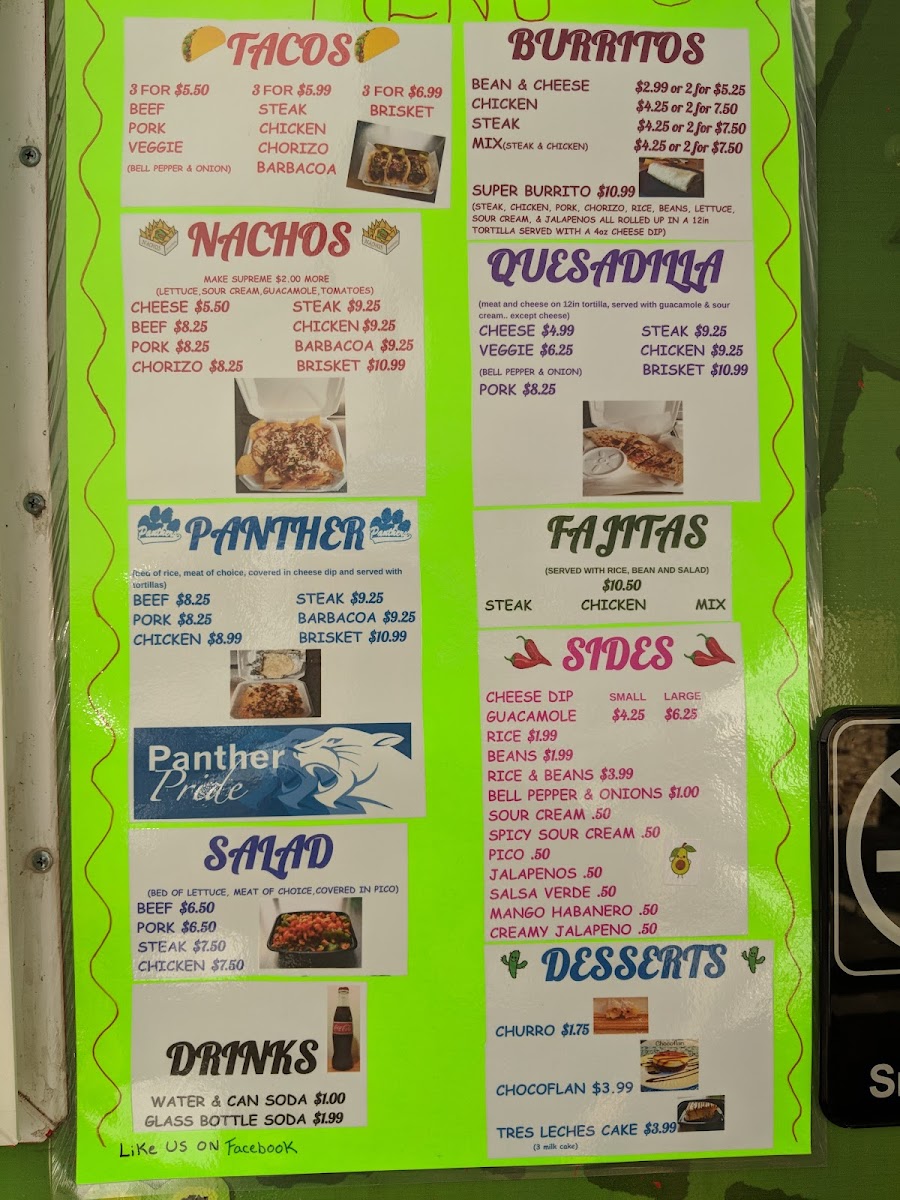 MENU
TACOS
3 FOR $5.50
BEEF
PORK
VEGGIE
(BELL PEPPER & ONION)
3 FOR $5.99
STEAK
CHICKEN
CHORIZO
BARBACOA
3 FOR $6.99
BRISKET
NACHOS
MAKE SUPREME $2.00 MORE
(LETTUCE,SOUR CREAM,GUACAMOLE,TOMATOES)
CHEESE $5.50
BEEF $8.25
PORK $8.25
CHORIZO $8.25
STEAK $9.25
CHICKEN $9.25
BARBACOA $9.25
BRISKET $10.99
Panthers PANTHER Panthers
(bed of rice, meat of choice, covered in cheese dip and served with
tortillas)
BEEF $8.25
PORK $8.25
CHICKEN $8.99
STEAK $9.25
BARBACOA $9.25
BRISKET $10.99
Panther
Pride
SALAD
(BED OF LETTUCE, MEAT OF CHOICE,COVERED IN PICO)
BEEF $6.50
PORK $6.50
STEAK $7.50
CHICKEN $7.50
DRINKS
WATER & CAN SODA $1.00
GLASS BOTTLE SODA $1.99
LIKE US ON Facebook
BURRITOS
BEAN & CHEESE $2.99 or 2 for $5.25
CHICKEN $4.25 or 2 for 7.50
STEAK $4.25 or 2 for $7.50
MIX(STEAK & CHICKEN) $4.25 or 2 for $7.50
SUPER BURRITO $10.99
(STEAK, CHICKEN, PORK, CHORIZO, RICE, BEANS, LETTUCE,
SOUR CREAM, & JALAPENOS ALL ROLLED UP IN A 12in
TORTILLA SERVED WITH A 4oz CHEESE DIP)
QUESADILLA
(meat and cheese on 12in tortilla, served with guacamole & sour
cream.. except cheese)
CHEESE $4.99
VEGGIE $6.25
(BELL PEPPER & ONION)
PORK $8.25
STEAK $9.25
CHICKEN $9.25
BRISKET $10.99
FAJITAS
(SERVED WITH RICE, BEAN AND SALAD)
$10.50
STEAK CHICKEN MIX
SIDES
CHEESE DIP SMALL LARGE
GUACAMOLE $4.25 $6.25
RICE $1.99
BEANS $1.99
RICE & BEANS $3.99
BELL PEPPER & ONIONS $1.00
SOUR CREAM .50
SPICY SOUR CREAM .50
PICO .50
JALAPENOS .50
SALSA VERDE .50
MANGO HABANERO .50
CREAMY JALAPENO .50
DESSERTS
CHURRO $1.75
Chocoflan
CHOCOFLAN $3.99
TRES LECHES CAKE $3.99
(3 milk cake)